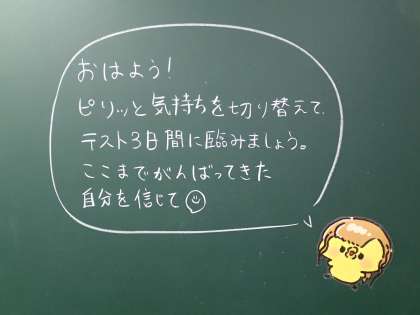 おはよう!
ピリッと気持ちを切り替えて、
テスト3日間に臨みましょう。
ここまでがんばってきた
自分を信じて☺